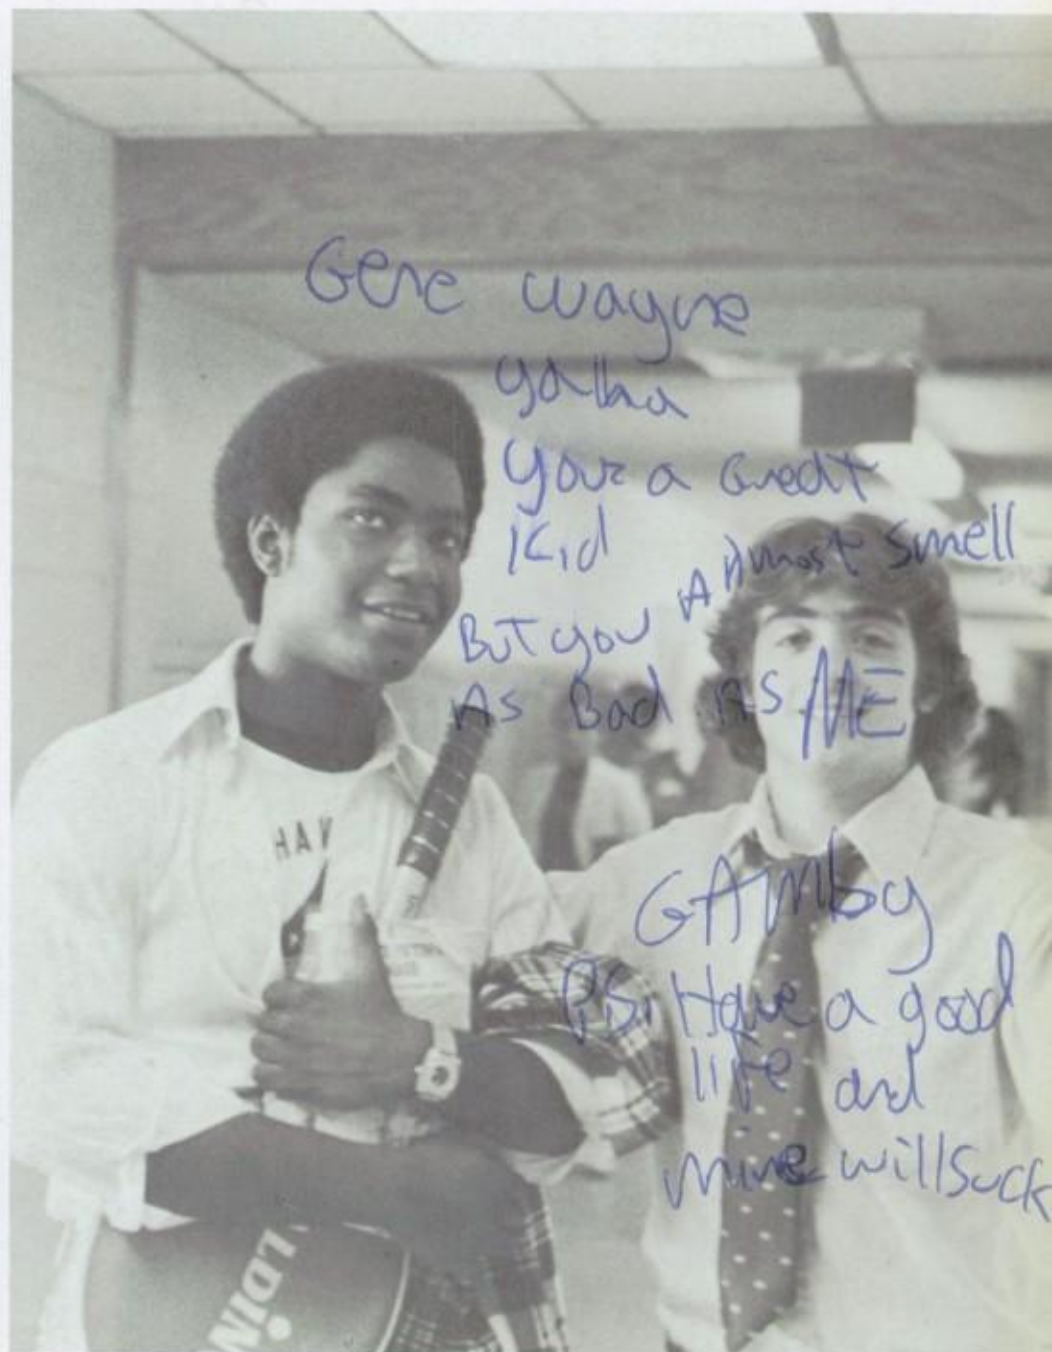 Gene Wayne
yabba
Your a Great
Kid
But you Almost smell
As Bad As ME
GAMby
P.S. Have a good
life and
mine will suck
HAW
LDIN